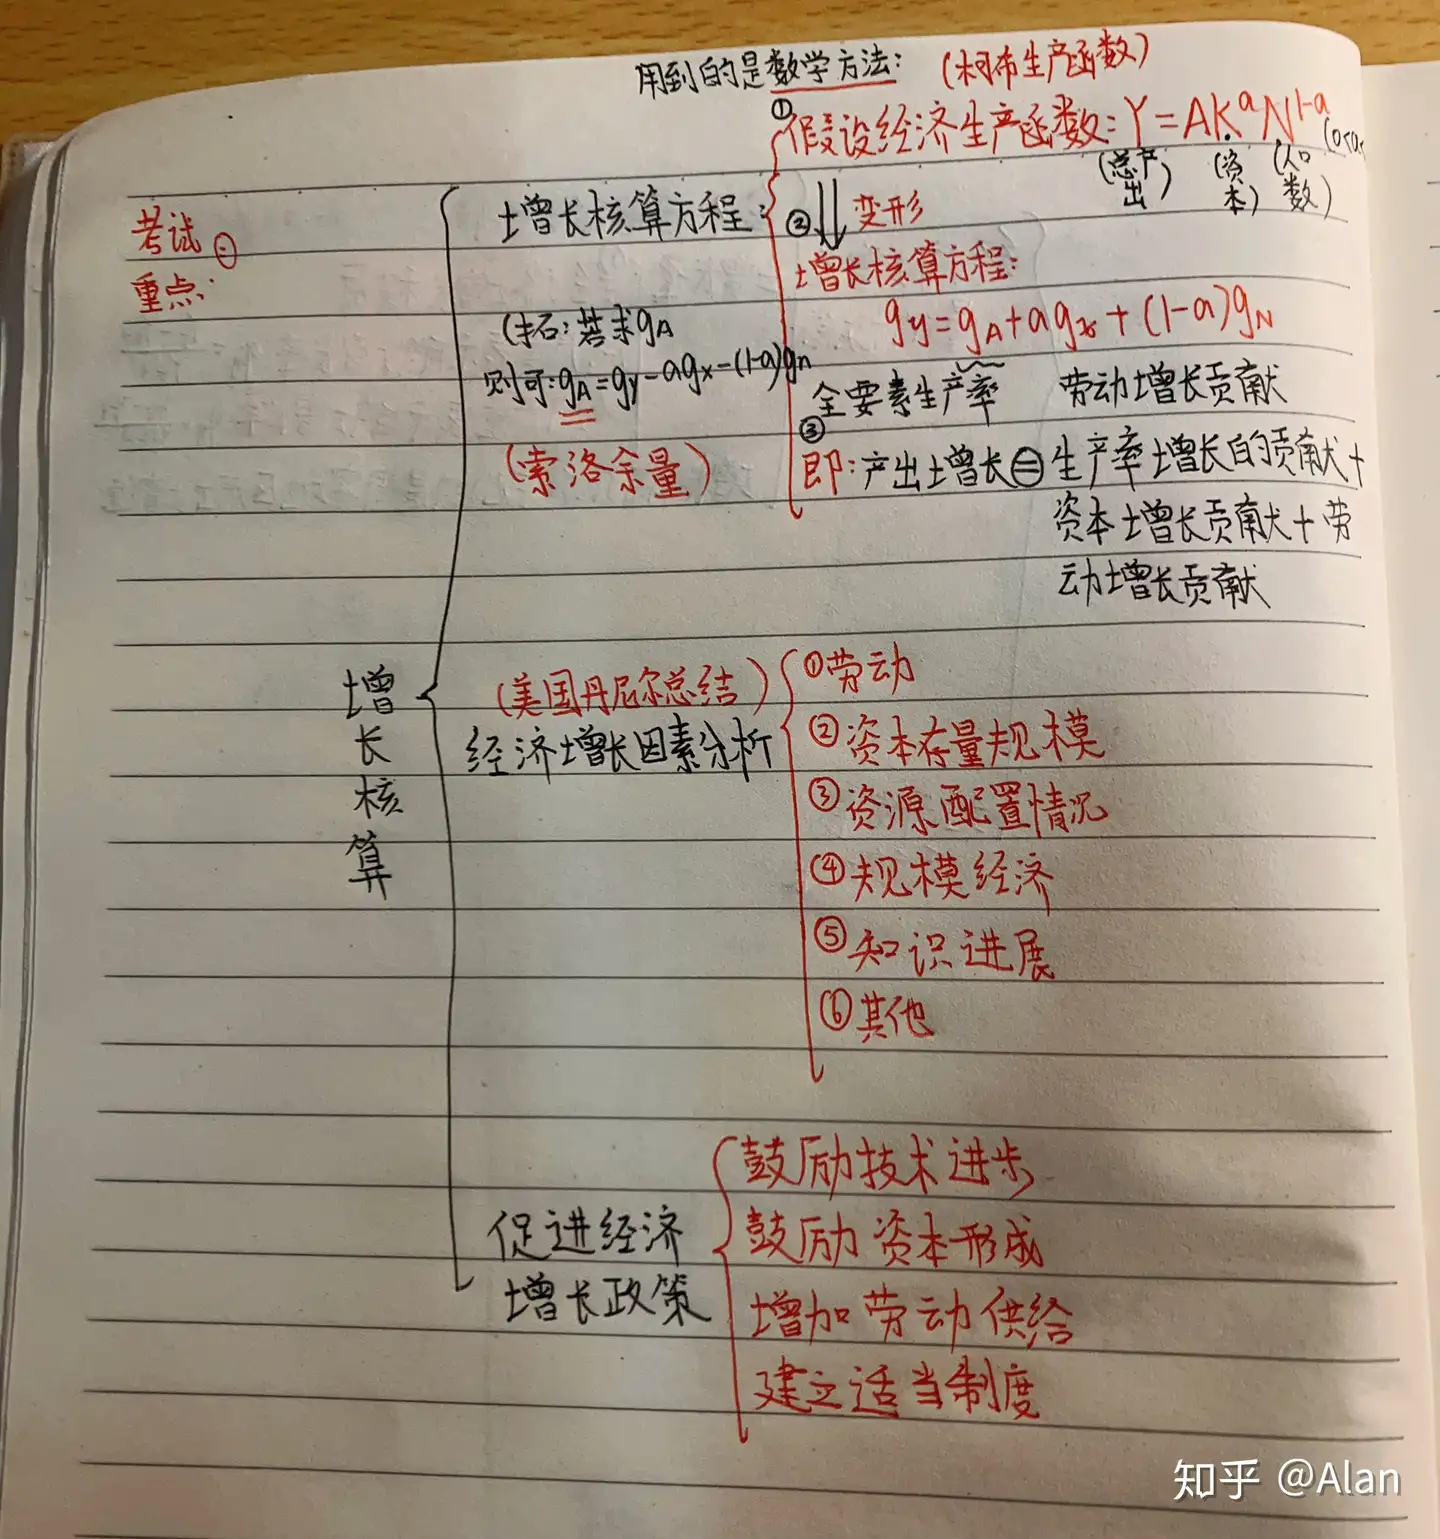 用到的是数学方法：（柯布生产函数）
①假设经济生产函数：Y=AKᵃN¹⁻ᵃ
（总产出） （资本） （人口数）
考试
重点：
增长核算方程：
② 变形
增长核算方程：
gy=gA+agx+(1-a)gN
若求gA
则可：gA=gy-agx-(1-a)gn
（索洛余量）
全要素生产率 劳动增长贡献
③
即：产出增长=生产率增长的贡献+
资本增长贡献+劳
动增长贡献
增长核算
（美国丹尼尔总结）
经济增长因素分析
①劳动
②资本存量规模
③资源配置情况
④规模经济
⑤知识进展
⑥其他
促进经济
增长政策
鼓励技术进步
鼓励资本形成
增加劳动供给
建立适当制度
知乎 @Alan